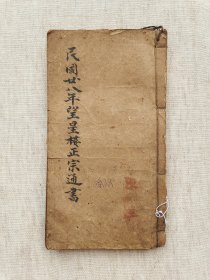 民國廿八年望星楼正宗通書